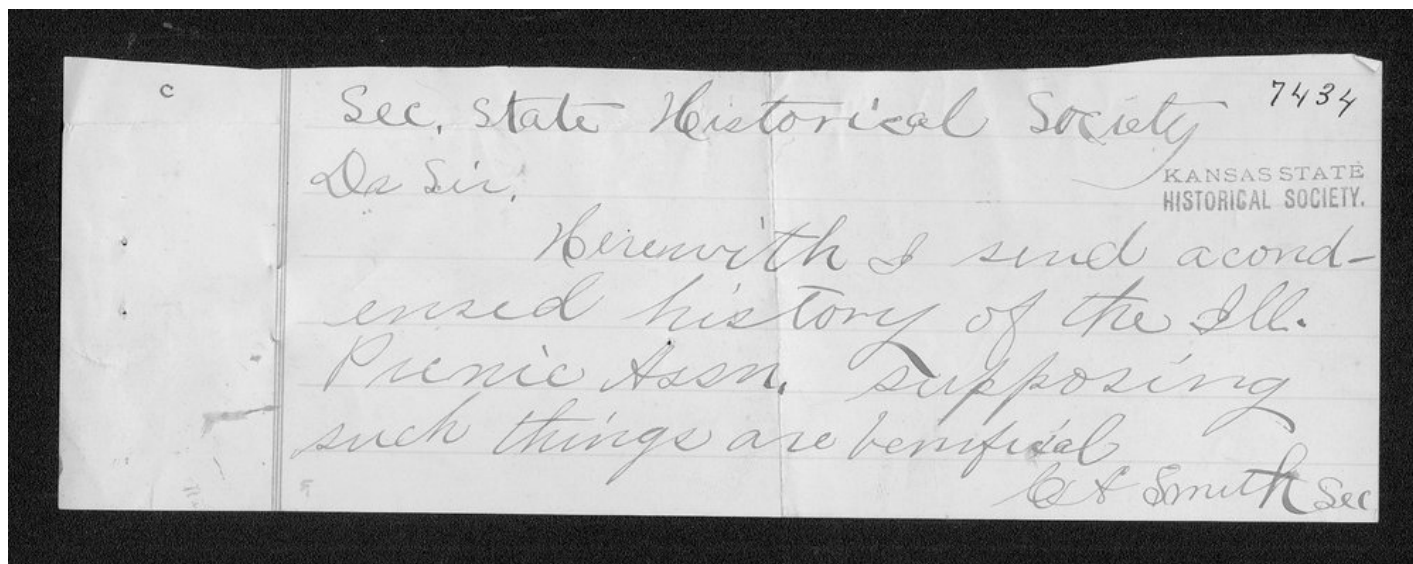 c
7434
Sec. State Historical Society
KANSAS STATE
HISTORICAL SOCIETY.
Dr Sir,
Herewith I send a cond-
ensed history of the Ill.
Picnic Assn. supposing
such things are benifical
Smith Sec